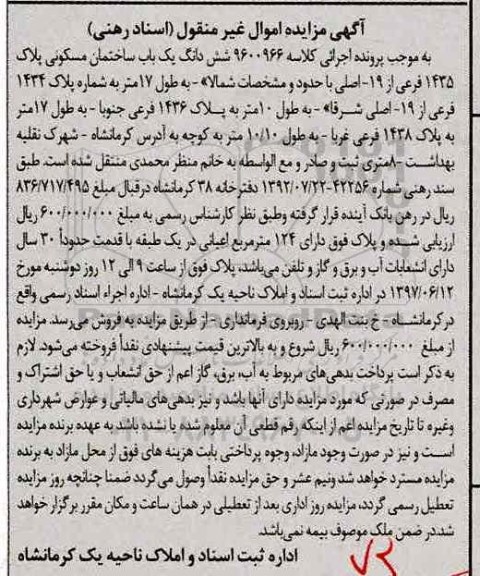 آگهی مزایده اموال غیر منقول (اسناد رهنی)
به موجب پرونده اجرائی کلاسه ۹۶۰۰۹۶۶ شش دانگ یک باب ساختمان مسکونی پلاک
۱۴۳۵ فرعی از ۱۹- اصلی با حدود و مشخصات شمالا» - به طول ۱۷متر به شماره پلاک ۱۴۳۴
فرعی از ۱۹- اصلی شرقا» - به طول ۱۰متر به پلاک ۱۴۳۶ فرعی جنوبا - به طول ۱۷متر
به پلاک ۱۴۳۸ فرعی غربا - به طول ۱۰/۱۰ متر به کوچه به آدرس کرمانشاه - شهرک نقلیه
بهداشت -۸متری ثبت و صادر و مع الواسطه به خانم منظر محمدی منتقل شده است. طبق
سند رهنی شماره ۴۲۲۵۶-۱۳۹۲/۰۷/۲۲ دفترخانه ۳۸ کرمانشاه درقبال مبلغ ۸۳۶/۷۱۷/۴۹۵
ریال در رهن بانک آینده قرار گرفته وطبق نظر کارشناس رسمی به مبلغ ۶۰۰/۰۰۰/۰۰۰ ریال
ارزیابی شده و پلاک فوق دارای ۱۲۴ مترمربع اعیانی در یک طبقه با قدمت حدوداً ۳۰ سال
دارای انشعابات آب و برق و گاز و تلفن می‌باشد، پلاک فوق از ساعت ۹ الی ۱۲ روز دوشنبه مورخ
۱۳۹۷/۰۶/۱۲ در اداره ثبت اسناد و املاک ناحیه یک کرمانشاه - اداره اجراء اسناد رسمی واقع
در کرمانشاه - خ بنت الهدی - روبروی فرمانداری - از طریق مزایده به فروش می‌رسد. مزایده
از مبلغ ۶۰۰/۰۰۰/۰۰۰ ریال شروع و به بالاترین قیمت پیشنهادی نقداً فروخته می‌شود. لازم
به ذکر است پرداخت بدهی‌های مربوط به آب، برق، گاز اعم از حق انشعاب و یا حق اشتراک و
مصرف در صورتی که مورد مزایده دارای آنها باشد و نیز بدهی‌های مالیاتی و عوارض شهرداری
وغیره تا تاریخ مزایده اعم از اینکه رقم قطعی آن معلوم شده یا نشده باشد به عهده برنده مزایده
است و نیز در صورت وجود مازاد، وجوه پرداختی بابت هزینه های فوق از محل مازاد به برنده
مزایده مسترد خواهد شد ونیم عشر و حق مزایده نقداً وصول می‌گردد ضمنا چنانچه روز مزایده
تعطیل رسمی گردد، مزایده روز اداری بعد از تعطیلی در همان ساعت و مکان مقرر برگزار خواهد
شد.در ضمن ملک موصوف بیمه نمی‌باشد.
اداره ثبت اسناد و املاک ناحیه یک کرمانشاه